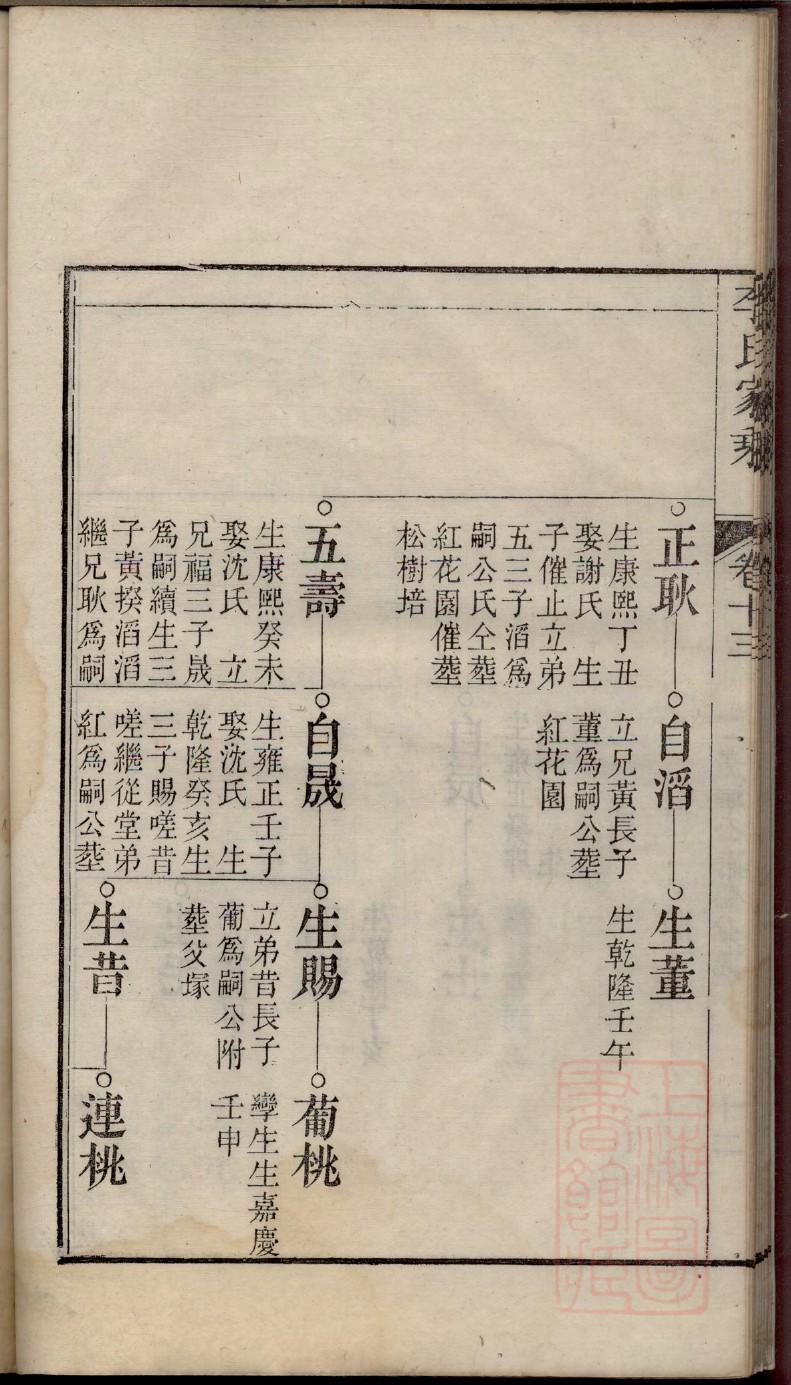 李氏家乘
卷十三
正耿
生康熙丁丑
娶謝氏 生
子催止立弟
五三子滔爲
嗣公氏仝塟
紅花園催塟
松樹培
自滔
立兄黃長子
董爲嗣公塟
紅花園
生董
生乾隆壬午
五壽
生康熙癸未
娶沈氏 立
兄福三子晟
爲嗣續生三
子黃揆滔滔
繼兄耿爲嗣
自晟
生雍正壬子
娶沈氏 生
乾隆癸亥生
三子賜嗟昔
嗟繼從堂弟
紅爲嗣公塟
生賜
立弟昔長子
葡爲嗣公附
塟父塚
葡桃
孿生生嘉慶
壬申
生昔
連桃
上海圖
書館藏